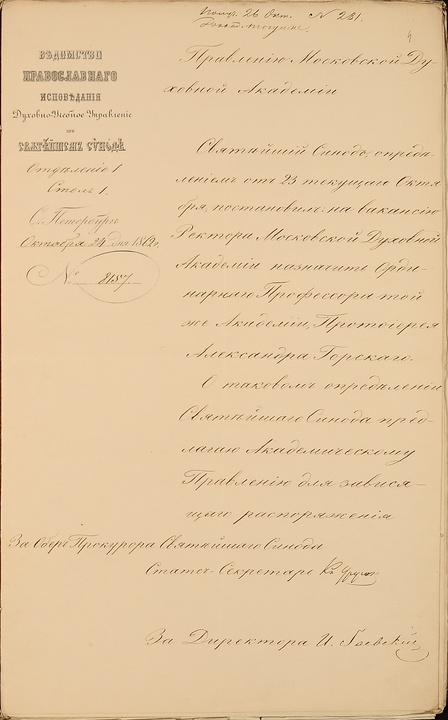 Получ. 26 Окт. № 231.
4
ВѢДОМСТВО
ПРАВОСЛАВНАГО
ИСПОВѢДАНІЯ
Духовно-Учебное Управленіе
при
СВЯТѢЙШЕМЪ СѴНОДѢ.
Отдѣленіе 1
Столъ 1.
С. Петербургъ
Октября 24 дня 1862.
№ 8157
Правленію Московской Ду-
ховной Академіи
Святѣйшій Синодъ, опредѣ-
леніемъ отъ 23 текущаго Октя-
бря, постановилъ: на вакансію
Ректора Московской Духовной
Академіи назначить Орди-
нарнаго Профессора той
же Академіи, Протоіерея
Александра Горскаго.
О таковомъ опредѣленіи
Святѣйшаго Синода пред-
лагаю Академическому
Правленію для завися-
щаго распоряженія
За Оберъ Прокурора Святѣйшаго Синода
Статсъ-Секретарь Кн. Урусовъ
За Директора И. Гаевскій